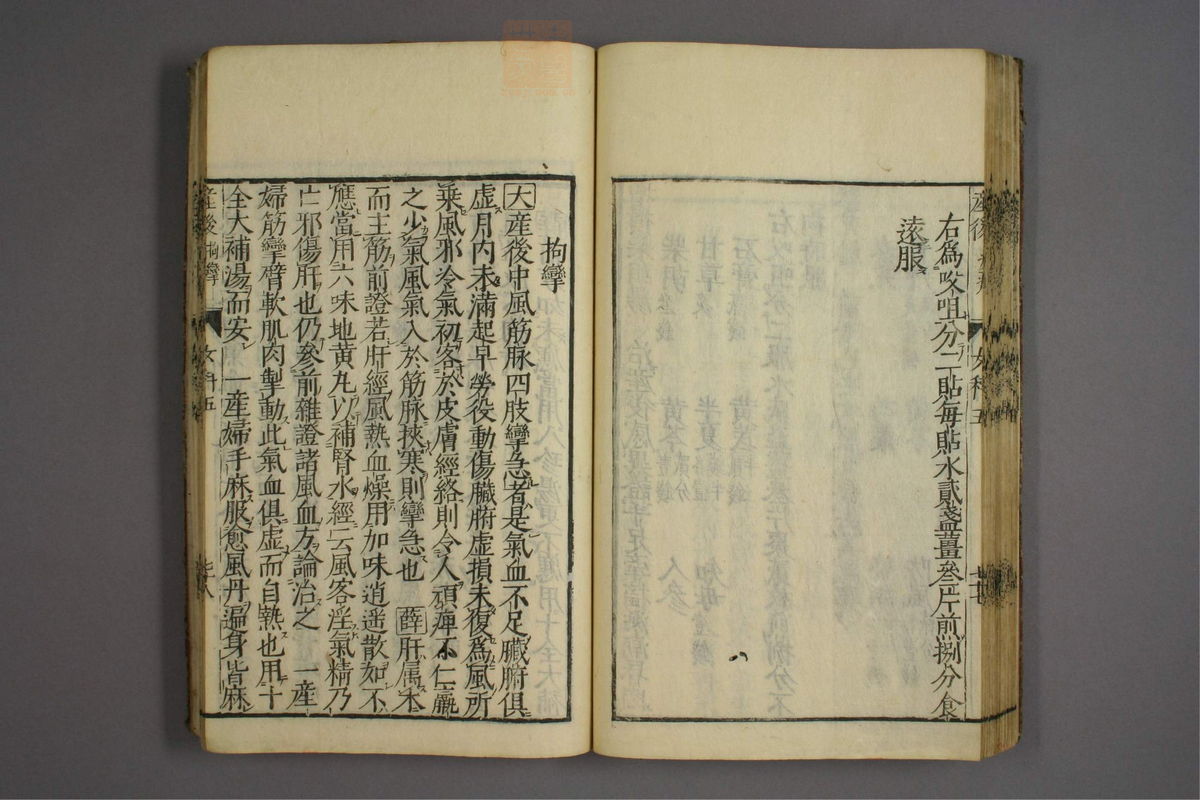 右爲㕮咀分二貼每貼水貳盞薑叄片煎捌分食
遠服
拘攣
大産後中風筋脉四肢攣急者是氣血不足臟腑俱
虛月內未滿起早勞役動傷臟腑虛損未復爲風所
乘風邪冷氣初客於皮膚經絡則令人頑痺不仁羸
之少氣風氣入於筋脉挾寒則攣急也 薛肝属木
而主筋前證若肝經風熱血燥用加味逍遥散如不
應當用六味地黄丸以補腎水經云風客淫氣精乃
亡邪傷肝也仍參前雜證諸風血方論治之 一産
婦筋攣臂軟肌肉掣動此氣血俱虛而自熱也用十
全大補湯而安 一産婦手麻服愈風丹遍身皆麻
産後 拘攣 女科五